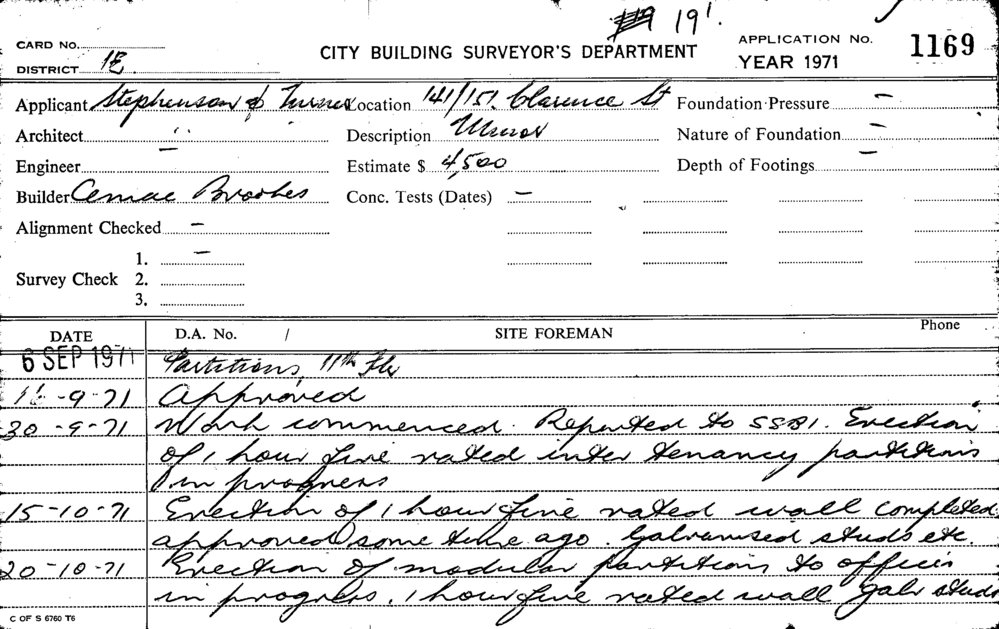 19'.
CARD No.
DISTRICT 1E
CITY BUILDING SURVEYOR'S DEPARTMENT
APPLICATION No. 1169
YEAR 1971
Applicant Stephenson & Turner Location 141/151 Clarence St Foundation Pressure —
Architect " Description Minor Nature of Foundation —
Engineer — Estimate $ 4,500 Depth of Footings —
Builder Cemac Brookes Conc. Tests (Dates) —
Alignment Checked —
Survey Check 1. —
2.
3.
DATE D.A. No. / SITE FOREMAN Phone
6 SEP 1971 Partitions, 11th Flr
-9-71 Approved
30-9-71 Work commenced. Reported to SSBI. Erection
of 1 hour fire rated inter tenancy partitions
in progress
15-10-71 Erection of 1 hour fire rated wall completed
approved some time ago. Galvanised studs etc.
20-10-71 Erection of modular partitions to offices
in progress. 1 hour fire rated wall galv studs
C OF S 6760 T6